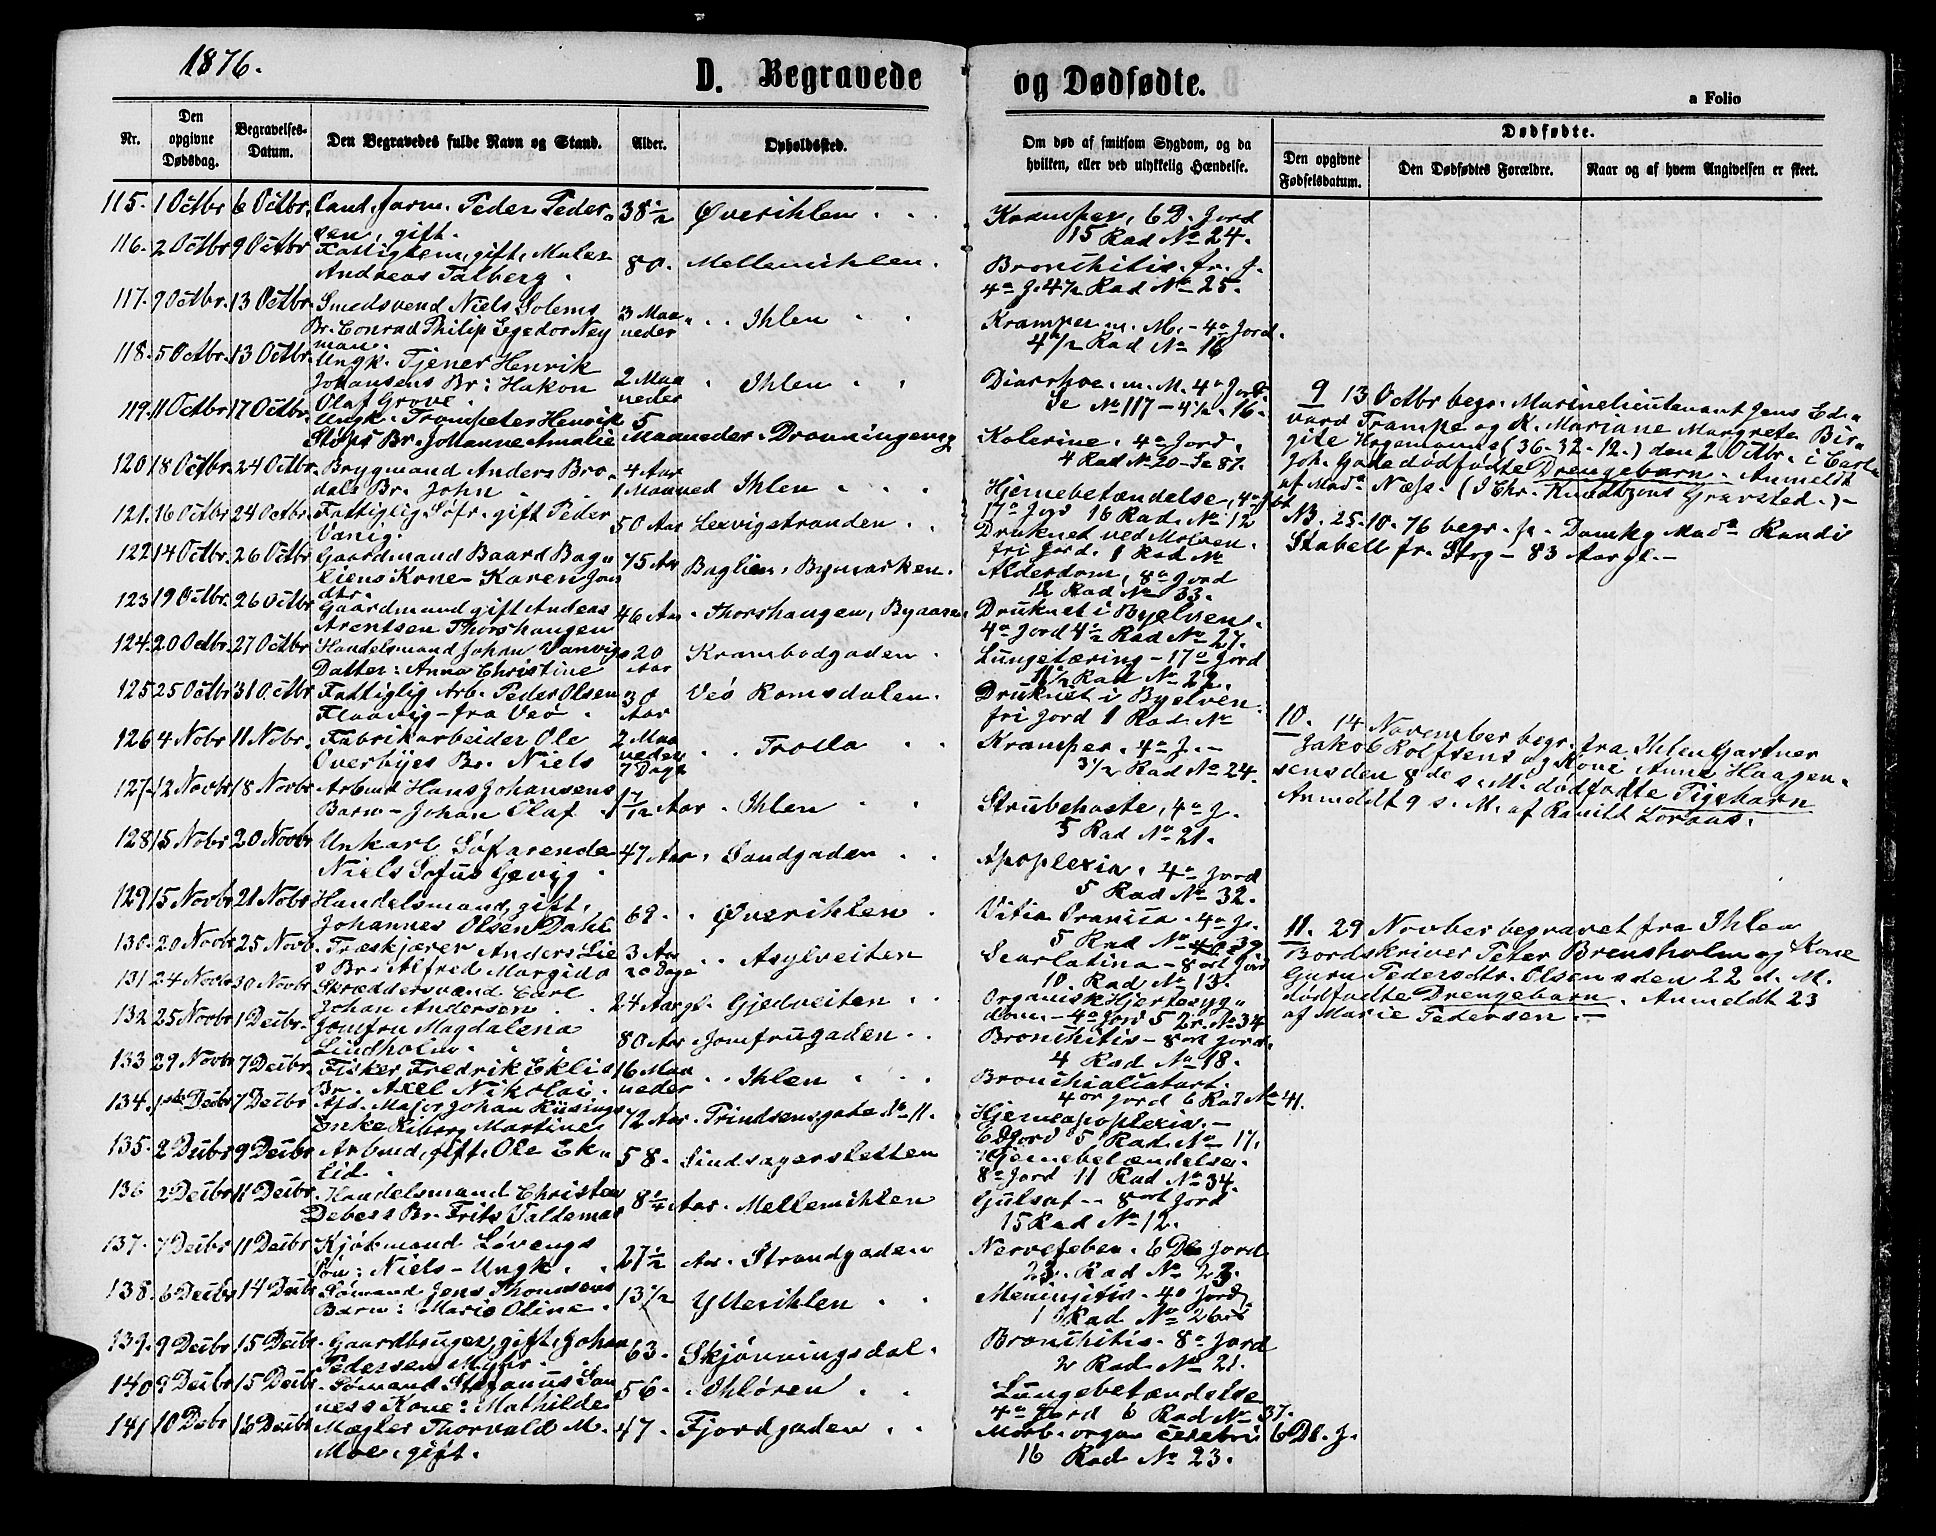 1876.
D. Begravede og Dødfødte.
a Folio
Nr.
Den opgivne Dødsdag.
Begravelses-Datum.
Den Begravedes fulde Navn og Stand.
Alder.
Opholdssted.
Om død af smitsom Sygdom, og da hvilken, eller ved ulykkelig Hændelse.
Dødfødte.
Den opgivne Fødselsdatum.
Den Dødfødtes Forældre.
Naar og af hvem Angivelsen er skeet.
115. 1 Octbr 6 Octbr. Cand. farm. Peder Peder- 38½ Øverihlen . . Kramper, 6 D. Jord
sen, gift. 15 Rad No 24.
116. 2 Octbr 9 Octbr Fattiglem, gift, Maler 80. Mellemihlen. Bronchitis. fr. J.
Andreas Talberg. 4a J. 4½ Rad No 25.
117. 9 Octbr. 13 Octbr. Smedsvend Niels Solems 3 Maa- . . Ihlen . . Kramper m. M. - 4a Jord.
Br. Conrad Philip Egedor Ney neder 4½ Rad No 16
man.
118. 5 Octbr. 13 Octbr. Ungk. Tjener Henrik
Johansens Br: Hakon 2 Maa . Ihlen . . Diarrhoe. m. M. 4a Jord.
Olaf Grove. neder Se No 117 - 4½. 16.
119. 11 Octbr 17 Octbr. Ungk. Trompeter Henrik 5
Støps Br. Johanne Amalie Maaneder. Dronningensg Kolerine. 4a Jord.
120. 18 Octbr. 24 Octbr. Brygmand Anders Bro- 4 Aar 4 Rad No 20 - Se 87.
dals Br. John . 1 Maaned Ihlen . . . Hjernebetændelse, 4a Jord
121. 16 Octbr 24 Octbr. Fattiglig Søfr. gift Peder 50 Aar Lexvigstranden . . 17a Jord 16 Rad. No 12
Vanig. Druknet ved Molven.
122 14 Octbr. 26 Octbr Gaardmand Baard Bag- 75 Aar Baglien, Bymarken. fri Jord. 1 Rad No
liens Kone - Karen Jons Alderdom, 8a Jord
dtr. 12 Rad No 33.
123 19 Octbr. 26 Octbr Gaardmand gift Anders 46 Aar. Thorshaugen, Byaasen. Druknet i Byelven.
Arentsen Thorshaugen 4a Jord 4½ Rad No 27.
124. 20 Octbr. 27 Octbr Handelsmand Johan Vanvigs 20 Krambodgaden . Lungetæring - 17a Jord
Datter: Anna Christine Aar 11½ Rad No 22.
125 25 Octbr. 31 Octbr Fattiglig Arb. Peder Olsen 30 Veø Romsdalen. Druknet i Byelven.
Flaavig - fra Veø . Aar fri Jord 1 Rad No
126 4 Nobr 11 Nobr. Fabrikarbeider Ole 2 Maa . . Trolla . . Kramper. 4a J. -
Overbyes Br. Niels neder 7 Dage 3½ Rad No 24.
127. 12 Novbr 18 Novbr. Arbmd Hans Johansens 1 7/12 Aar . Ihlen . . Strubehoste, 4a J.
Barn - Johan Olaf 5 Rad No 21.
128 15 Nobr 20 Novbr Unkarl Søfarende 47 Aar. Sandgaden . . Apoplexia. 4a Jord
Niels Sofus Gevig . 5 Rad No 32.
129 15 Novbr 21 Nobr Handelsmand, gift, 62. . Øverihlen . Vitia Organica. 4a J.
Johannes Olsen Dahl 5 Rad No 39
130. 20 Novbr 25 Novb. Træskjærer Anders Lie 3 Aar . . Asylveiten Scarlatina - 8de Jord
s Br: Alfred Margido 20 Dage 10. Rad No 13.
131 24 Novbr 30 Novbr Skræddersvend Carl 24 Aar gl. Gjedveiten . . Organisk Hjertesyg-
Johan Andersen . . dom. - 4a Jord 5 2 r. No 34
132 25 Novbr. 1 Decbr. Jomfru Magdalena 80 Aar. Jomfrugaden . . Bronchitis - 8de Jord.
Lindholm . . . 4 Rad No 18.
133 29 Novbr 7 Decbr. Fisker Fredrik Eklis 16 Maa . . Ihlen . . . Bronchialcatarr.
Br. Axel Nikolai. neder 4de Jord 6 Rad No 41.
134. 1ste Decbr 7 Decbr Afd. Major Johan Rüsings 72 Aar. Prindsensgade No 11. Hjerneapoplexia. -
Enke Martine 6 D Jord 5 Rad No 17.
135. 2 Decbr 9 Decbr Arbmd, gift, Ole Ek- 58. Sindsagersletten Hjernebetændelse.
lid. 8a Jord 11 Rad No 34.
136 2 Decbr 11 Decbr Handelsmand Christen 8¼ Aar. Mellemihlen Gulsot -- 8de Jord
Debess Br. Frits Valdemar 15 Rad No 12.
137. 7 Decbr 11 Decbr Kjøbmand Løvengs 27½ Aar. Strandgaden Nervefeber. 6 De Jord
Søn: Niels - Ungk. . . 23. Rad No 23.
138. 6 Decbr 14 Decbr Sømand Jens Thomsens 13½ Ytterihlen . . Meningitis. 4a Jord
Barn: Marie Oline. 1 Rad No 26
139. 9 Decbr 15 Decbr. Gaardbruger, gift, Johan 63. Skjønningsdal. Bronchitis. 8a Jord
Pedersen Myhr. 2 Rad No 21.
140 9 Decbr 15 Decbr. Sømand Stefanus San 56. Ihløren . . Lungebetændelse
ness Kone: Mathilde 4a Jord 6 Rad No 37.
141 10 Debr 16 Decbr Mægler Thorvald M. 47. Fjordgaden . . Morb. organ cerebri 6 De. J.
Moe, gift. 16 Rad No 23.
9 13 Octbr begr. Marinelieutenant Jens Ed-
vard Trampe og K. Mariane Margrete Bir-
gite Hagemanns (36-32-12.) den 2 Octbr. i Carl
Joh. Gade dødfødte Drengebarn. Anmeldt
af Mada Næss. (I Chr. Knudtzons Gravsted.) -
NB. 25-10-76 begr. fr. Domkg Mada Randi
Stabell fr. Strg - 83 Aar gl. -
10. 14 November begr. fra Ihlen Gartner
Jakob Rolfsens og Kone Anne Haagen-
sens den 8de s. M. dødfødte Pigebarn
Anmeldt 9 s. M. af Ranild Loraas.
11. 29 Novber begravet fra Ihlen
Bordskriver Peter Brensholm og Kone
Guru Pedersdtr. Olsens den 22 d. M.
dødfødte Drengebarn. Anmeldt 23
af Marie Pedersen. -